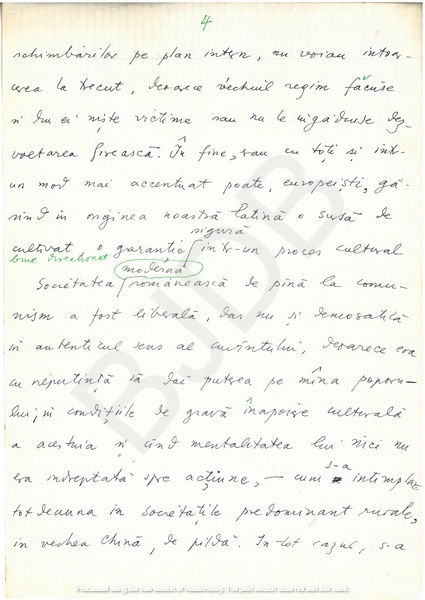 4
schimbărilor pe plan intern, nu voiau întoar-
cerea la trecut, deoarece vechiul regim făcuse
și din ei niște victime sau nu le îngăduise dez-
voltarea firească. În fine, erau cu toții și într-
un mod mai accentuat poate, europeiști, gă-
sind în originea noastră latină o sursă de
sigură
cultivat o garanție într-un proces cultural
bine direcționat
modernă
Societatea românească de pînă la comu-
nism a fost liberală, dar nu și democratică
în autenticul sens al cuvîntului, deoarece era
cu neputință să dai puterea pe mîna poporu-
lui, în condițiile de gravă înapoiere culturală
a acestuia și cînd mentalitatea lui nici nu
era îndreptată spre acțiune, — cum s-a întîmplat
totdeauna în societățile predominant rurale,
în vechea Chină, de pildă. În tot cazul, s-a
BJDB